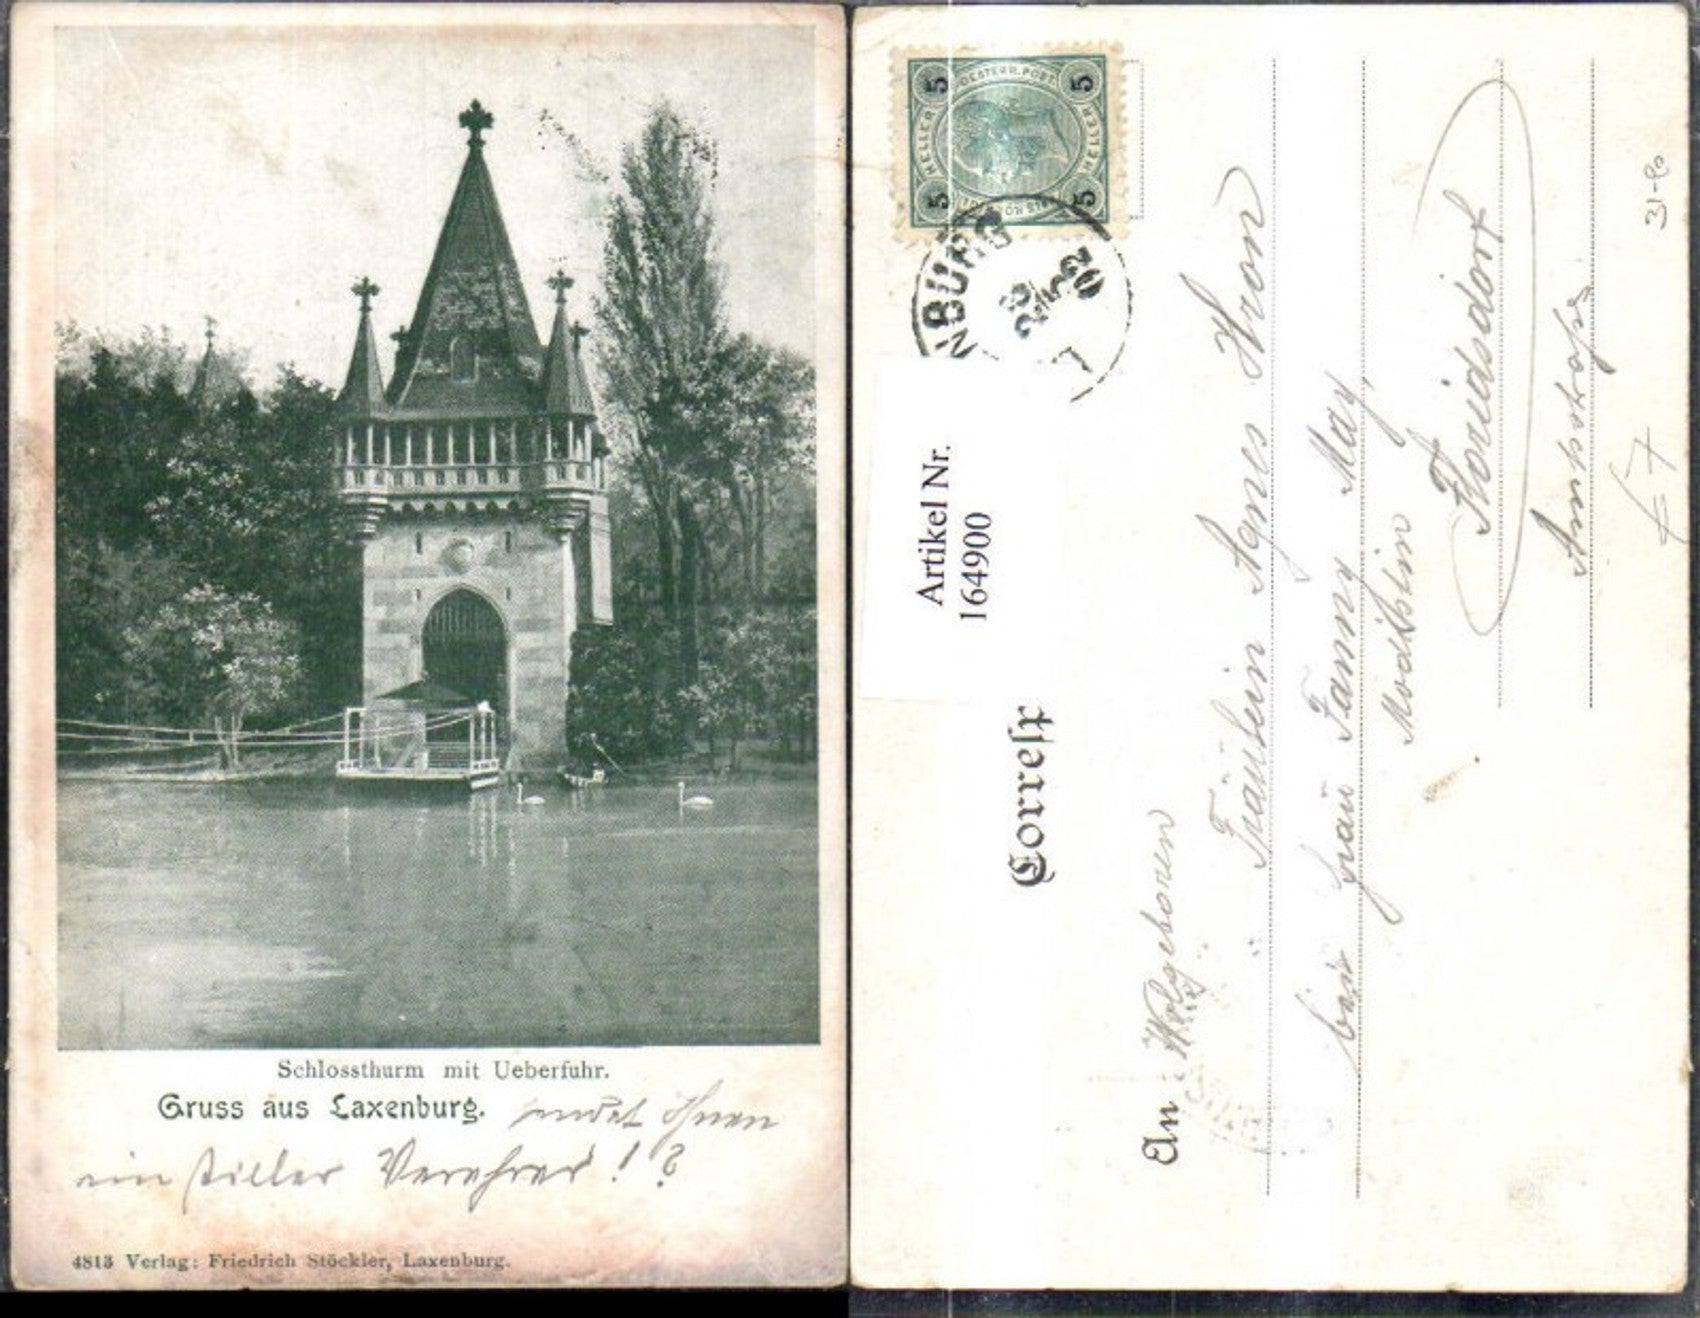 Schlossthurm mit Ueberfuhr.
Gruss aus Laxenburg. sendet Ihnen
ein stiller Verehrer!?
4813 Verlag: Friedrich Stöckler, Laxenburg.
5 OESTERR. POST 5
HELLER HELLER
5 5
NBURG
23 5 02
Artikel Nr.
164900
Correſt
An Wolgeboren
Fräulein Agnes Hron
bei Frau Fanny May,
Modistin
Floridsdorf
31-80
€ 7